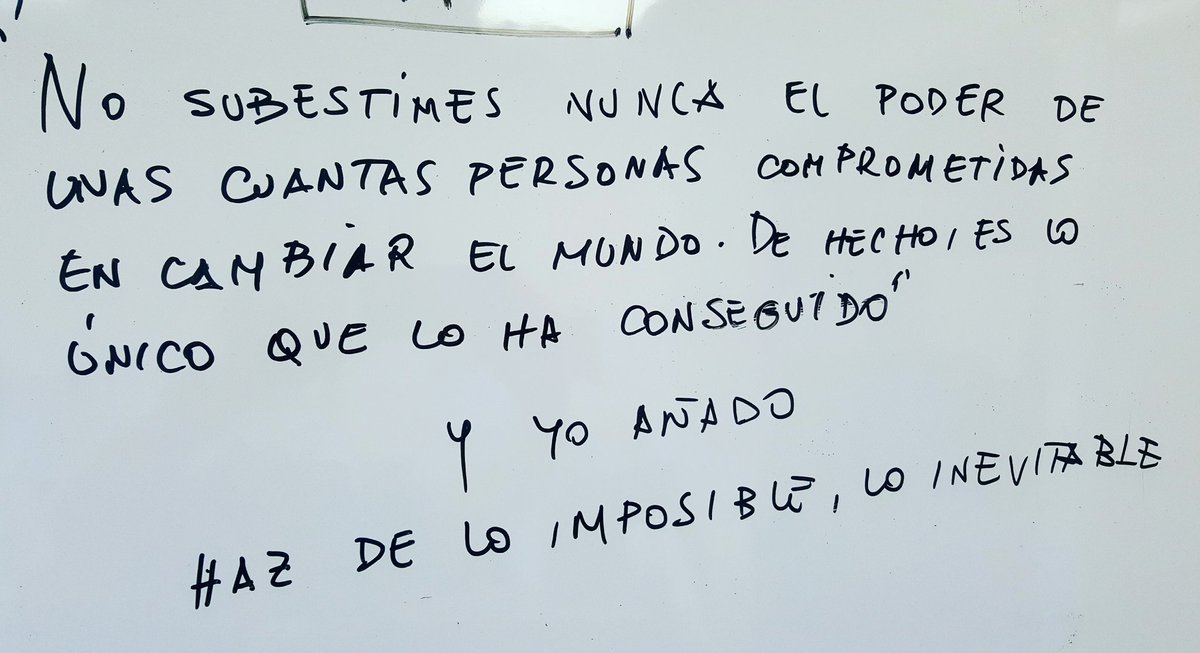 No SUBESTIMES NUNCA EL PODER DE
UNAS CUANTAS PERSONAS COMPROMETIDAS
EN CAMBIAR EL MUNDO. DE HECHO, ES LO
ÚNICO QUE LO HA CONSEGUIDO"
Y YO AÑADO
HAZ DE LO IMPOSIBLE, LO INEVITABLE